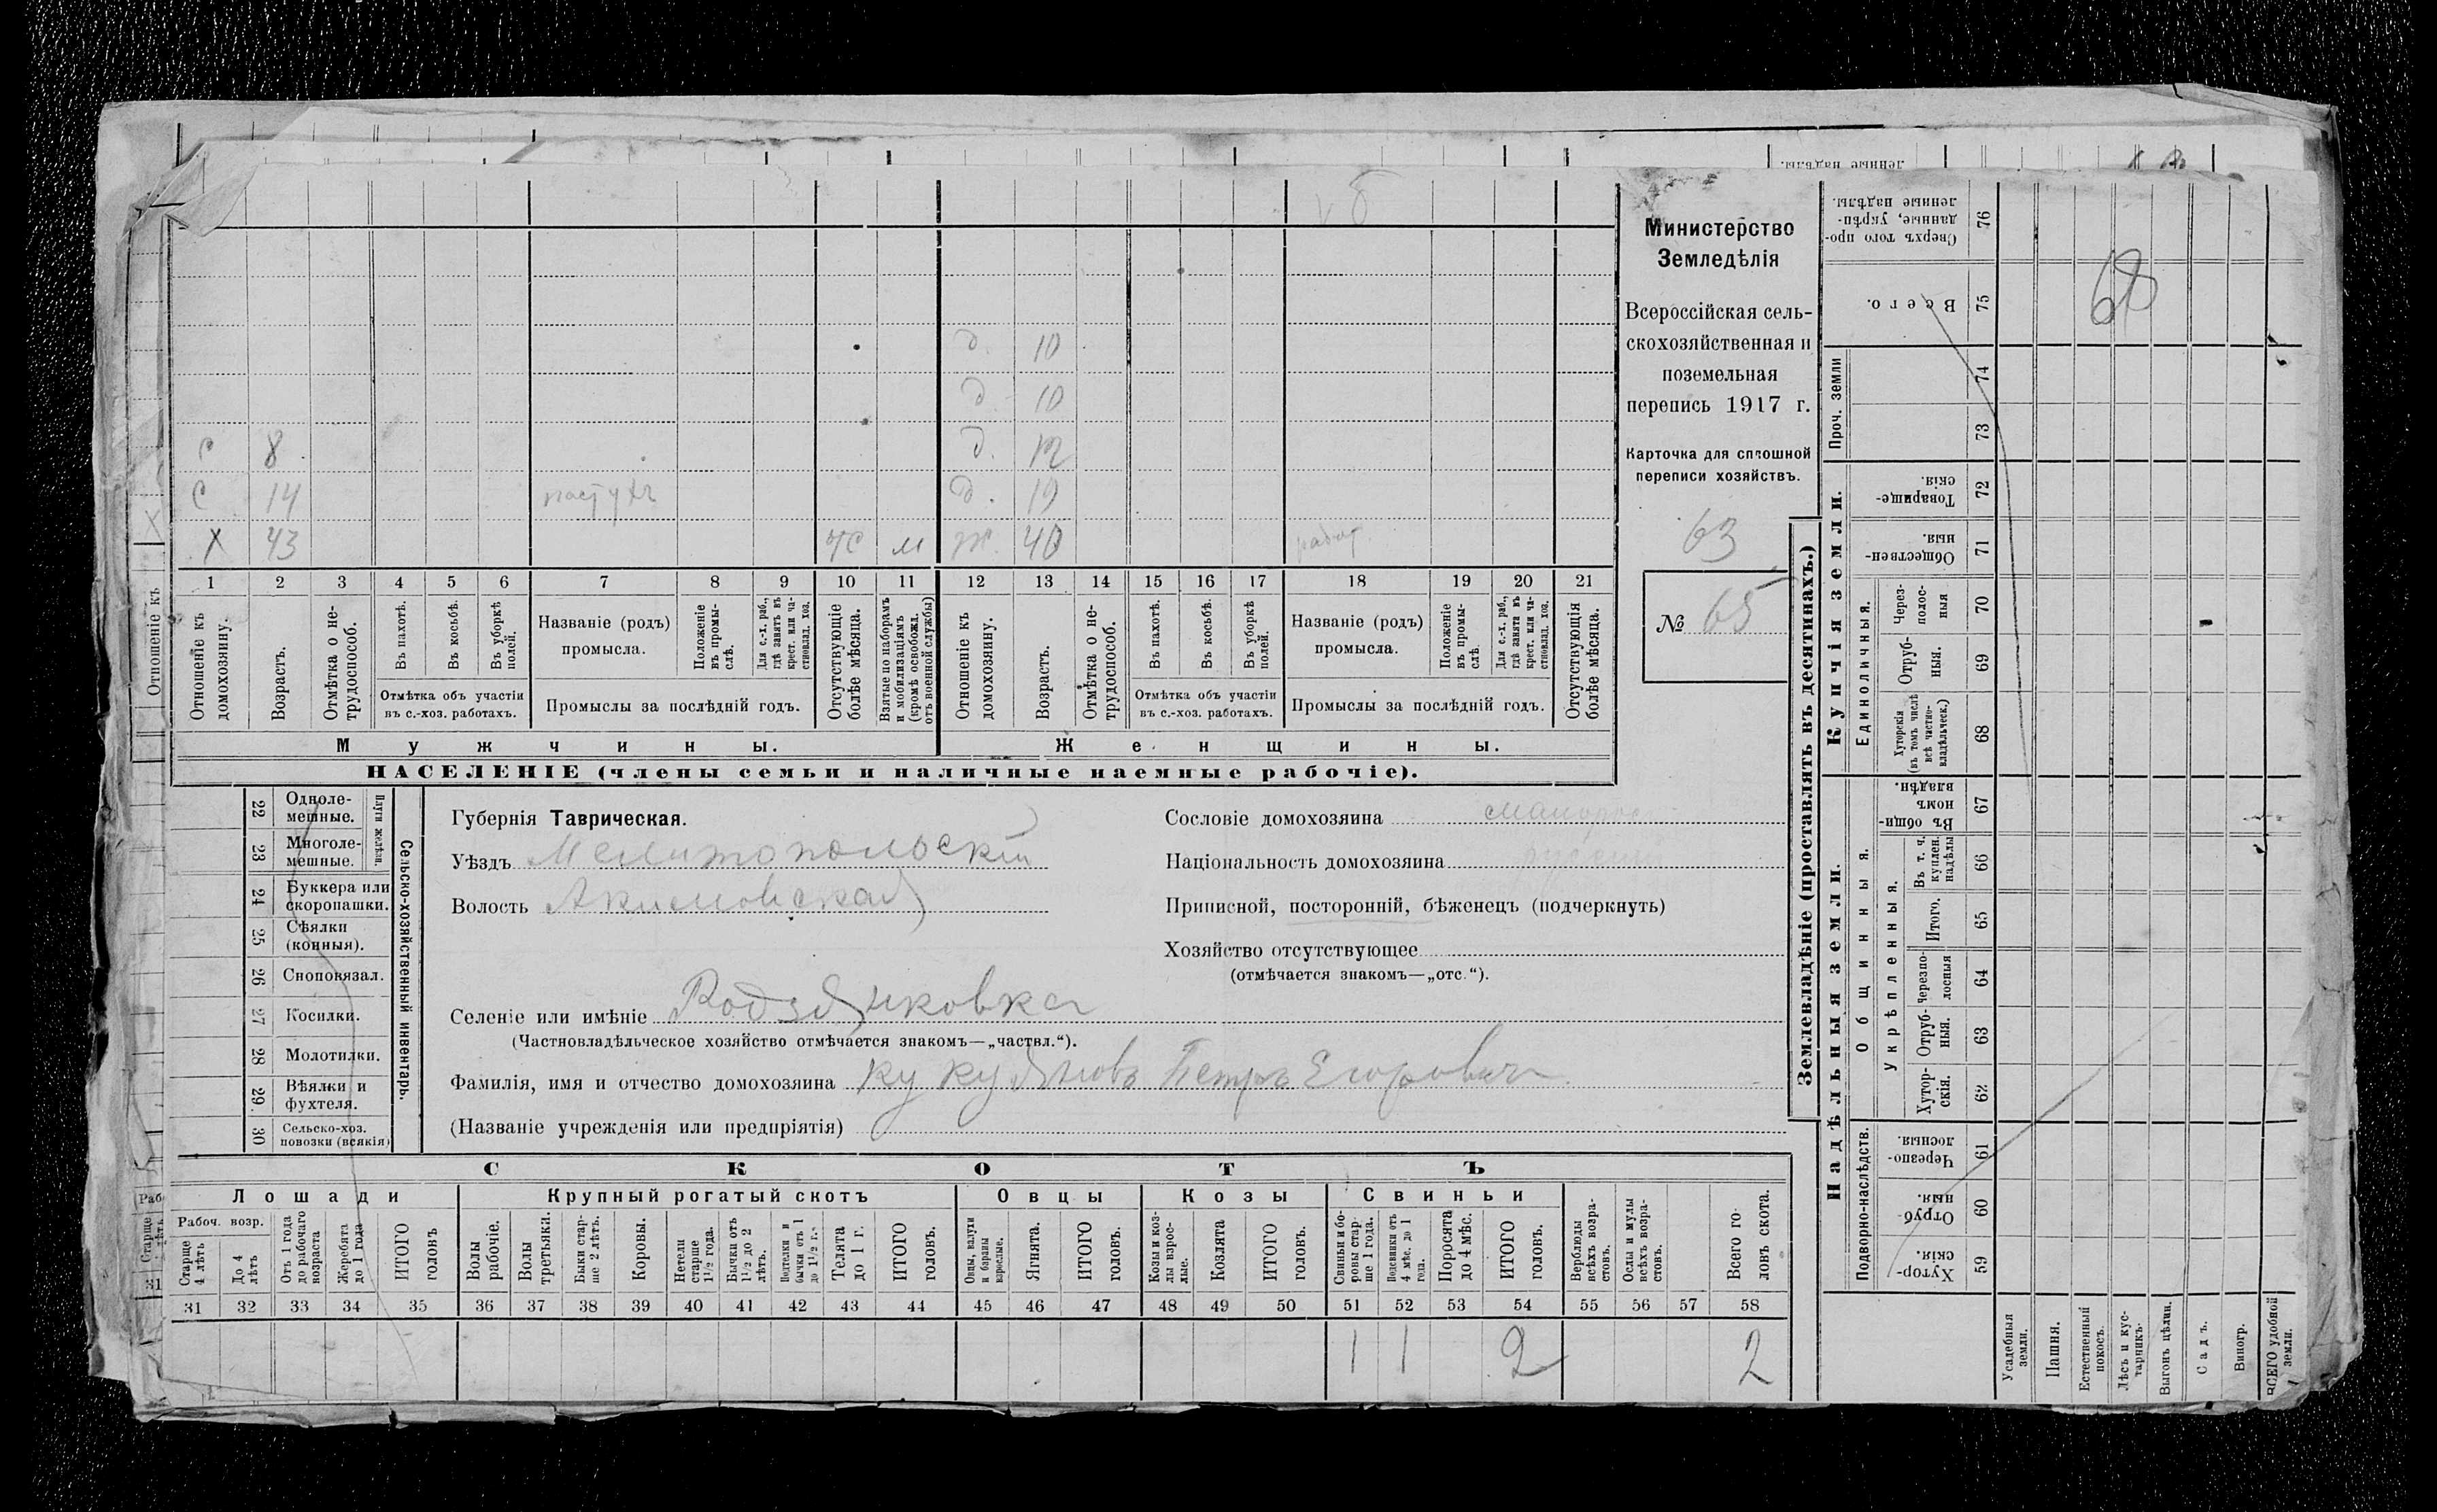 Министерство
Земледѣлія
Всероссійская сель-
скохозяйственная и
поземельная
перепись 1917 г.
Карточка для сплошной
переписи хозяйствъ.
63
№ 65
д. 10
д. 10
С 8 д. 12
С 14 пастухъ д. 19
Х 43 м ж. 40
1 2 3 4 5 6 7 8 9 10 11 12 13 14 15 16 17 18 19 20 21
Отношеніе къ домохозяину.
Возрастъ.
Отмѣтка о не-трудоспособ.
Въ пахотѣ.
Въ косьбѣ.
Въ уборкѣ полей.
Отмѣтка объ участіи
въ с.-хоз. работахъ.
Названіе (родъ)
промысла.
Положеніе въ промы-слѣ.
Для с.-х. раб., гдѣ занятъ въ крест. или ча-стновлад. хоз.
Промыслы за послѣдній годъ.
Отсутствующіе болѣе мѣсяца.
Взятые по наборамъ и мобилизаціямъ (кромѣ освобожд. отъ военной службы)
Отношеніе къ домохозяину.
Возрастъ.
Отмѣтка о не-трудоспособ.
Въ пахотѣ.
Въ косьбѣ.
Въ уборкѣ полей.
Отмѣтка объ участіи
въ с.-хоз. работахъ.
Названіе (родъ)
промысла.
Положеніе въ промы-слѣ.
Для с.-х. раб., гдѣ занята въ крест. или ча-стновлад. хоз.
Промыслы за послѣдній годъ.
Отсутствующія болѣе мѣсяца.
Мужчины.
Женщины.
НАСЕЛЕНІЕ (члены семьи и наличные наемные рабочіе).
22 Одноле-мешные.
23 Многоле-мешные.
Плуги желѣзн.
24 Буккера или скоропашки.
25 Сѣялки (конныя).
26 Сноповязал.
27 Косилки.
28 Молотилки.
29. Вѣялки и фухтеля.
30 Сельско-хоз. повозки (всякія)
Сельско-хозяйственный инвентарь.
Губернія Таврическая.
Уѣздъ Мелитопольскій
Волость Акимовская
Сословіе домохозяина
Національность домохозяина
Приписной, посторонній, бѣженецъ (подчеркнуть)
Хозяйство отсутствующее
(отмѣчается знакомъ—„отс.“).
Селеніе или имѣніе Родзянковка
(Частновладѣльческое хозяйство отмѣчается знакомъ—„частвл.“).
Фамилія, имя и отчество домохозяина Кукуяновъ Петръ Егоровичъ
(Названіе учрежденія или предпріятія)
СКОТЪ
Лошади Крупный рогатый скотъ Овцы Козы Свиньи
Рабоч. возр.
Старше 4 лѣтъ
До 4 лѣтъ
Отъ 1 года до рабочаго возраста
Жеребята до 1 года
ИТОГО головъ
Волы рабочіе.
Волы третьяки.
Быки стар-ше 2 лѣтъ.
Коровы.
Нетели старше 1½ года.
Бычки отъ 1½ до 2 лѣтъ.
Подтелки и бычки отъ 1 до 1½ г.
Телята до 1 г.
ИТОГО головъ.
Овцы, валухи и бараны взрослые.
Ягнята.
ИТОГО головъ.
Козы и коз-лы взрос-лые.
Козлята
ИТОГО головъ.
Свиньи и бо-ровы стар-ше 1 года.
Подсвинки отъ 4 мѣс. до 1 года.
Поросята до 4 мѣс.
ИТОГО головъ.
Верблюды всѣхъ возра-стовъ.
Ослы и мулы всѣхъ возра-стовъ.
Всего го-ловъ скота.
31 32 33 34 35 36 37 38 39 40 41 42 43 44 45 46 47 48 49 50 51 52 53 54 55 56 57 58
1 1 2 2
Землевладѣніе (проставлять въ десятинахъ.)
Купчія земли.
Надѣльныя земли.
Сверхъ того про-данные, укрѣп-ленные надѣлы. 76
Всего. 75
68
Проч. земли 74 73
Товарище-скія. 72
Обществен-ныя. 71
Единоличныя.
Через-полос-ныя 70
Отруб-ныя. 69
Хуторскія (въ томъ числѣ всѣ частно-владѣльческ.) 68
Общинныя.
Въ общи-номъ владѣн. 67
Укрѣпленныя.
Въ т. ч. куплен. надѣлы 66
Итого. 65
Черезпо-лосныя 64
Отруб-ныя. 63
Хутор-скія. 62
Подворно-наслѣдств.
Черезпо-лосныя. 61
Отруб-ныя. 60
Хутор-скія. 59
Усадебныя земли.
Пашня.
Естественный покосъ.
Лѣсъ и кус-тарникъ.
Выгонъ цѣлин.
Садъ.
Виногр.
ВСЕГО удобной земли.
Отношеніе къ